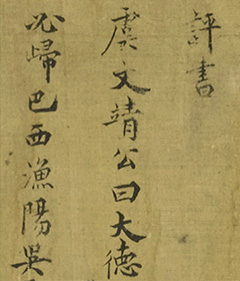 評書
虞文靖公曰大德
必歸巴西漁陽吳